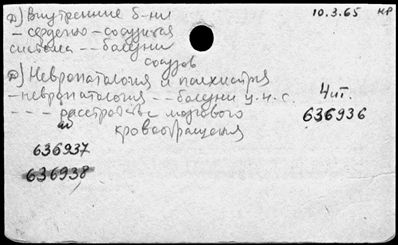 д) Внутренние б-ни
10.3.65
НР
– сердечно – сосудистая
система – – болезни
сосудов
д) Невропатология и психиатрия
– невропатология – – болезни ц.н.с.
– – – расстройства мозгового
кровообращения
4 чит.
636936
636937
636938